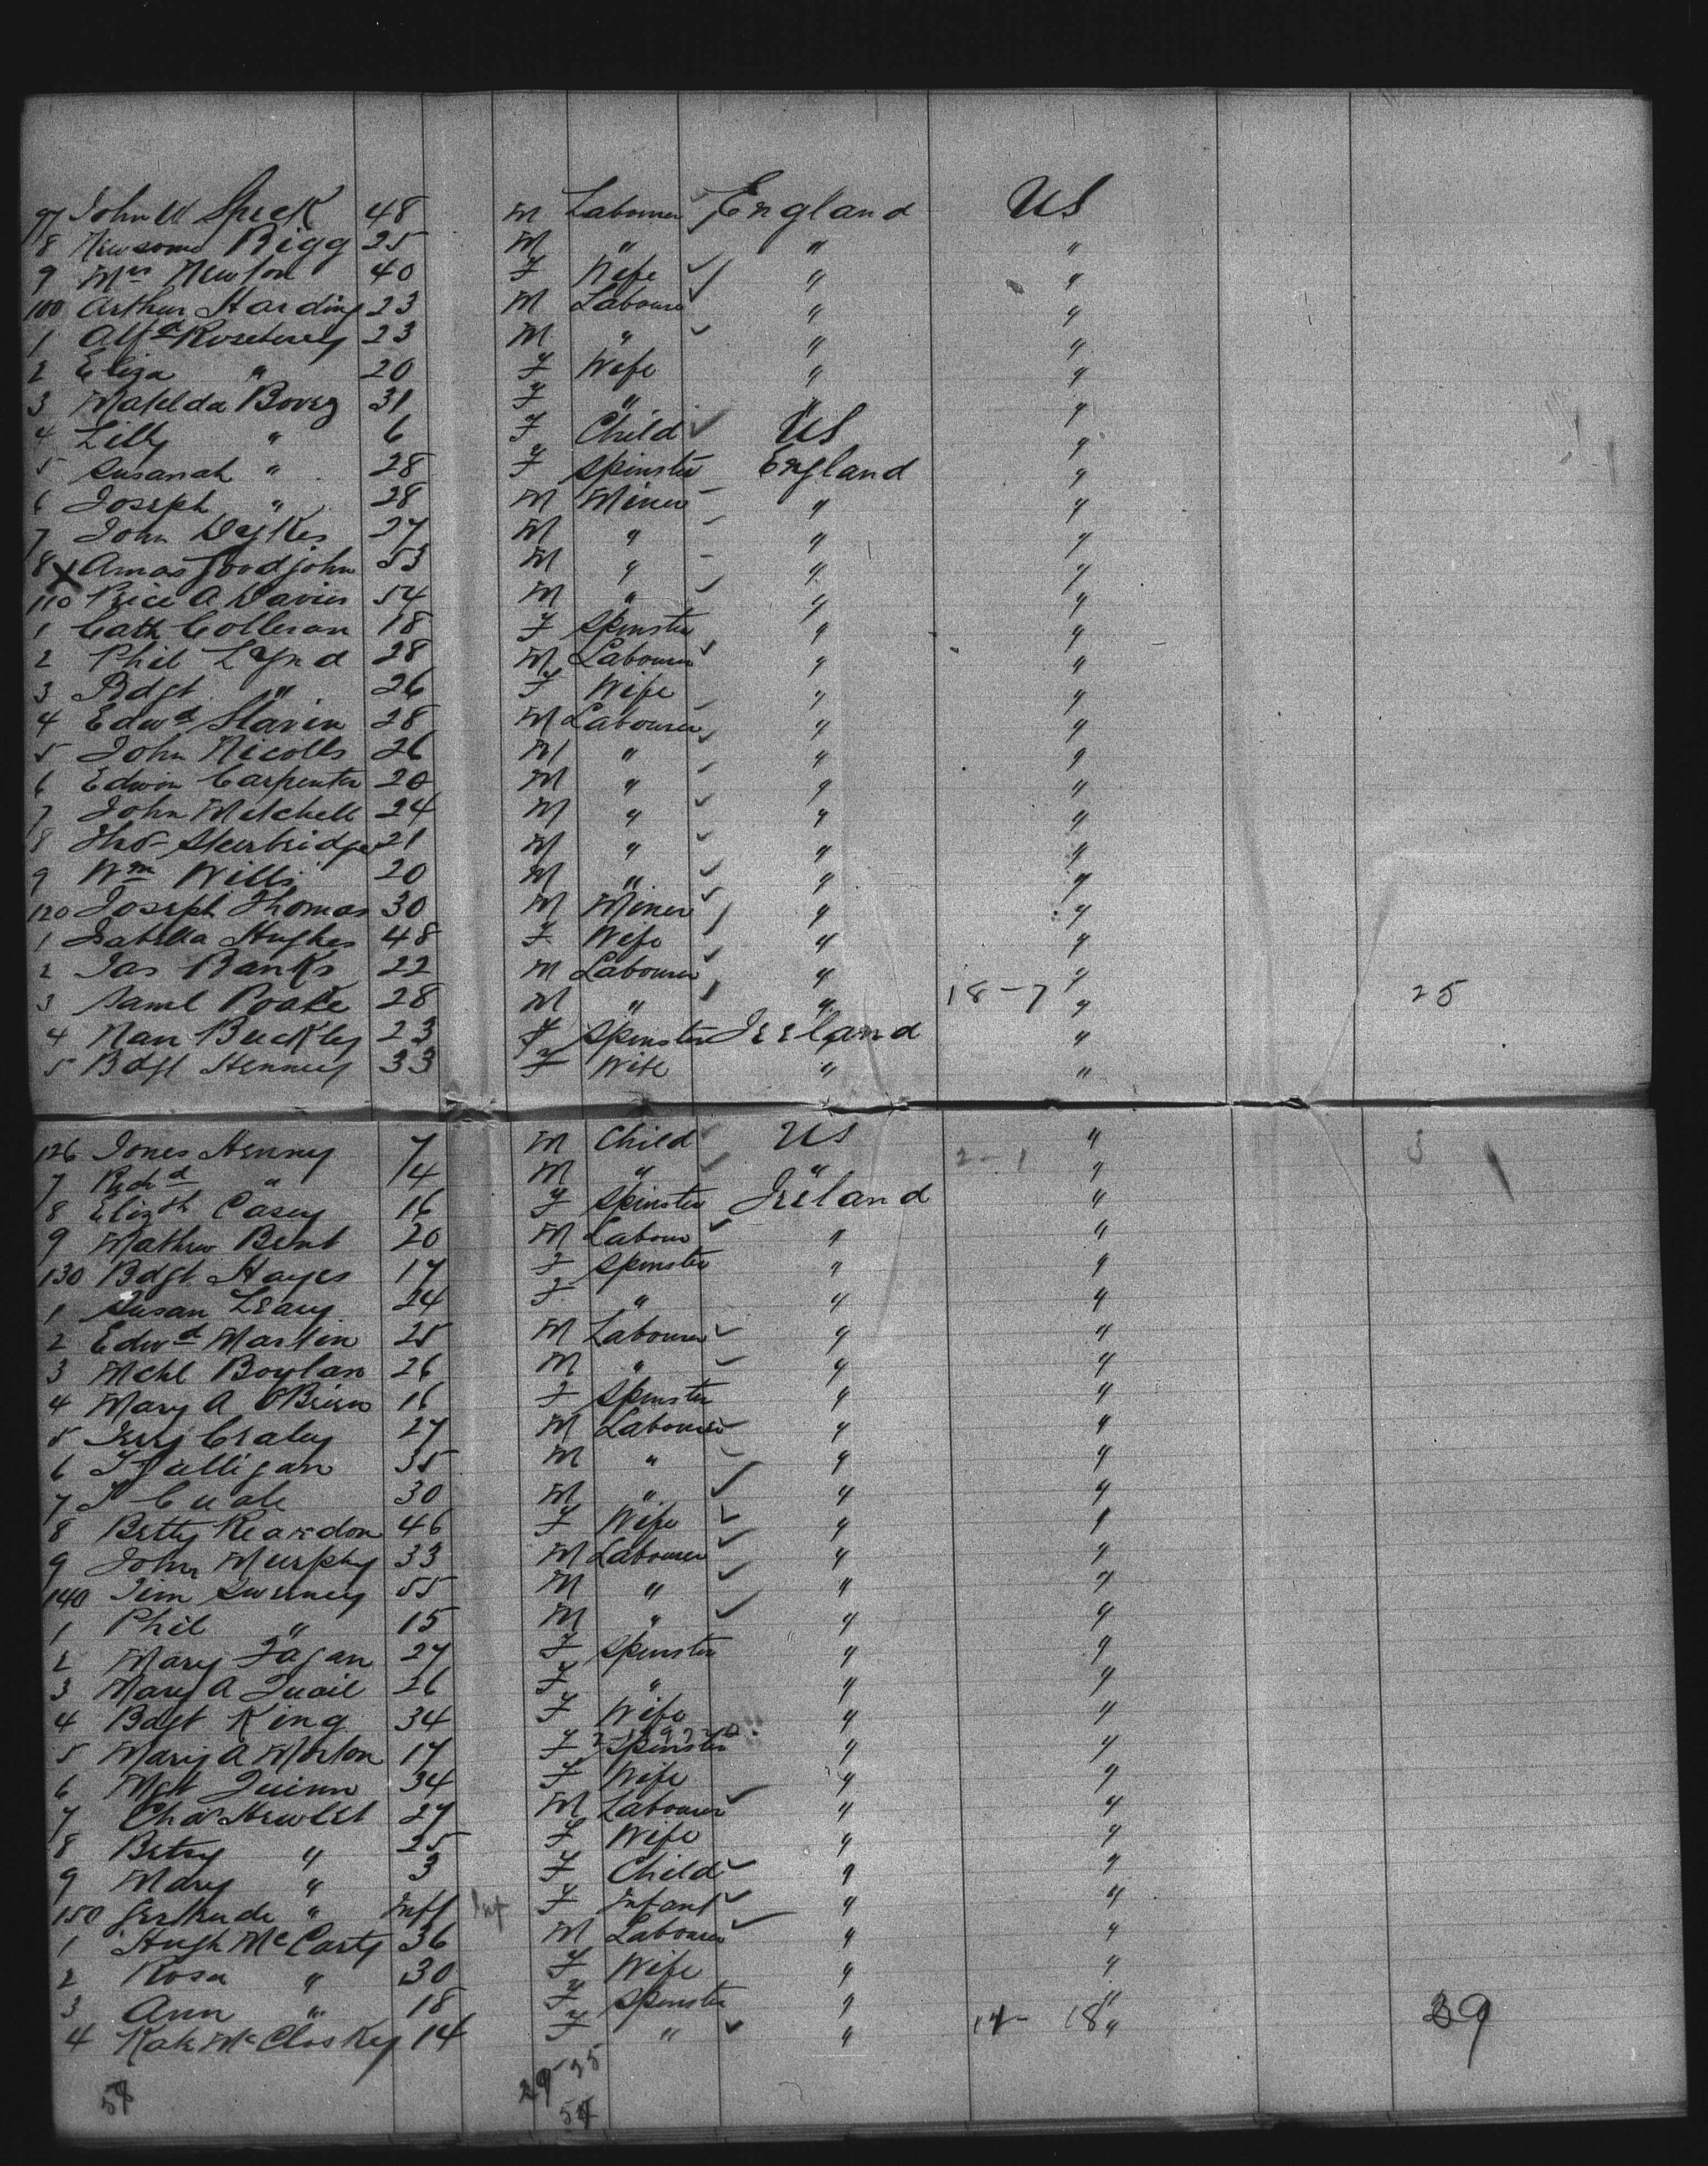 97 John W Speck 48 M Labourer England US
8 Newsome Bigg 25 M " " "
9 Mrs Newton 40 F Wife " "
100 Arthur Harding 23 M Labourer " "
1 Alfd Rosebury 23 M " " "
2 Eliza " 20 F Wife " "
3 Matilda Bovey 31 F " " "
4 Lilly " 6 F Child US "
5 Susanah " 28 F Spinster England "
6 Joseph " 28 M Miner " "
7 John Dykes 27 M " " "
8 X Amos Goodjohn 53 M " " "
110 Price A Davies 54 M " " "
1 Cath Colleran 18 F Spinster " "
2 Phil Lynd 28 M Labourer " "
3 Bdgt " 26 F Wife " "
4 Edwd Slavin 28 M Labourer " "
5 John Nicolls 26 M " " "
6 Edwin Carpenter 20 M " " "
7 John Mitchell 24 M " " "
8 Thos 21 M " " "
9 Wm Wills 20 M " " "
120 Joseph Thomas 30 M Miner " "
1 Isabella Hughes 48 F Wife " "
2 Jas Banks 22 M Labourer " "
3 Saml Poake 28 M " " 18-7 " 25
4 Nan Buckley 23 F Spinster Ireland "
5 Bdgt Henney 33 F Wife " "
126 Jones Henney 7 M Child US "
7 Richd " 14 M " " 2-1 " 3
8 Elizth Casey 16 F Spinster Ireland "
9 Mathew Bent 20 M Labour " "
130 Bdgt Hayes 17 F Spinster " "
1 Susan Leary 24 F " " "
2 Edwd Martin 25 M Labourer " "
3 Mchl Boylan 26 M " " "
4 Mary A OBrien 16 F Spinster " "
5 Jerry 27 M Labourer " "
6 35 M " " "
7 30 M " " "
8 Betty Reardon 46 F Wife " "
9 John Murphy 33 M Labourer " "
140 Jim Sweeney 55 M " " "
1 Phil " 15 M " " "
2 Mary Fagan 27 F Spinster " "
3 Mary A Quail 26 F " " "
4 Bdgt King 34 F Wife " "
5 Mary A Morton 17 F Spinster " "
6 Mgt Quinn 34 F Wife " "
7 Chas Hewlet 27 M Labourer " "
8 Betsy " 25 F Wife " "
9 Mary " 3 F Child " "
150 Gertrude " Inft Inf F Infant " "
1 Hugh McCarty 36 M Labourer " "
2 Rosa " 30 F Wife " "
3 Ann " 18 F Spinster " "
4 Kate McCloskey 14 F " " 14-18 " 39
29-25